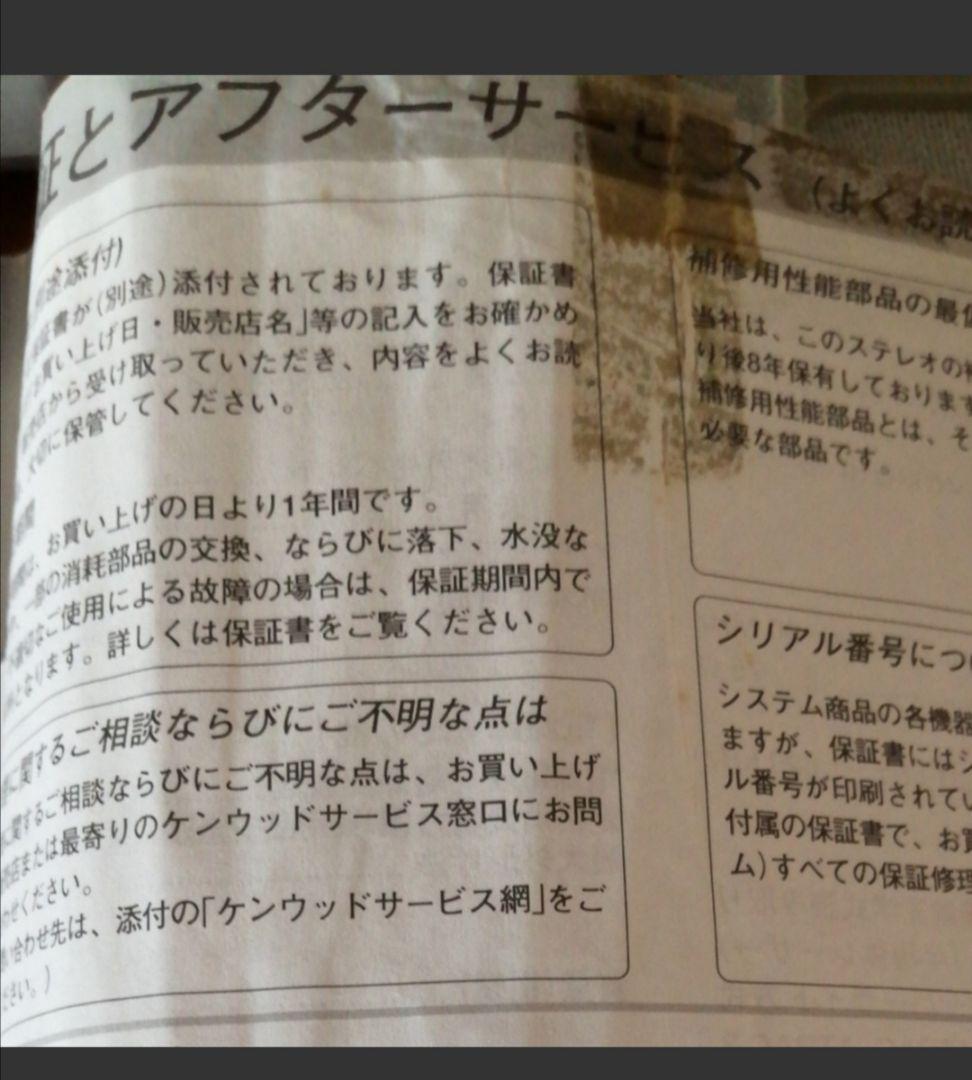 証とアフターサービス (よくお読
途添付)
証書が(別途)添付されております。保証書
お買い上げ日・販売店名」等の記入をお確かめ
から受け取っていただき、内容をよくお読
に保管してください。
お買い上げの日より1年間です。
の消耗部品の交換、ならびに落下、水没な
なご使用による故障の場合は、保証期間内で
となります。詳しくは保証書をご覧ください。
に関するご相談ならびにご不明な点は
に関するご相談ならびにご不明な点は、お買い上げ
店または最寄りのケンウッドサービス窓口にお問
わせください。
い合わせ先は、添付の「ケンウッドサービス網」をご
ださい。)
補修用性能部品の最低
当社は、このステレオの補
り後8年保有しております
補修用性能部品とは、そ
必要な部品です。
シリアル番号につい
システム商品の各機器
ますが、保証書にはシ
ル番号が印刷されてい
付属の保証書で、お買
ム)すべての保証修理